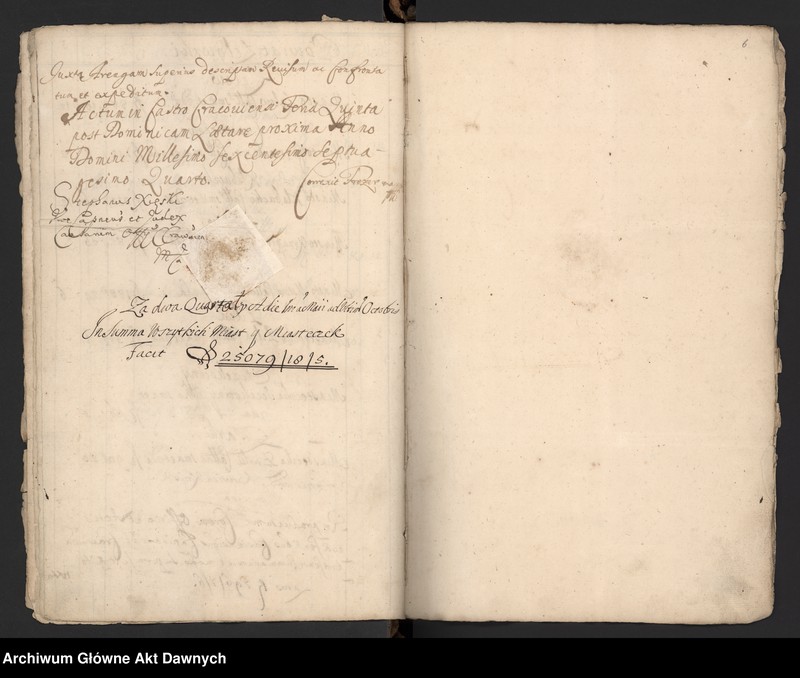 6
Juxta Arengam superius descriptam Revisum ac Confronta
tum et expeditum.
Actum in Castro Cracoviensi Feria Quinta
post Dominicam Laetare proxima Anno
Domini Millesimo Sexcentesimo Septua-
gesimo Quarto.
Correxit
Stephanus
et Judex
Za dwa Quartały a die Maii ad Octobris
In Summa Wszytkich Miast y Miasteczek
Facit 25079/18/5.
Archiwum Główne Akt Dawnych